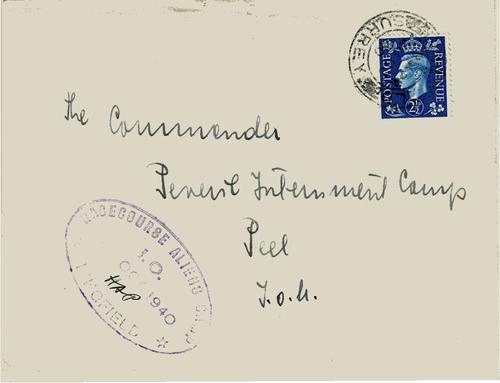 SURREY
POSTAGE REVENUE
2½D
The Commander
Peveril Internment Camp
Peel
I.o.M.
RACECOURSE ALIENS CAMP
I.O.
OCT 1940
HAP
LINGFIELD